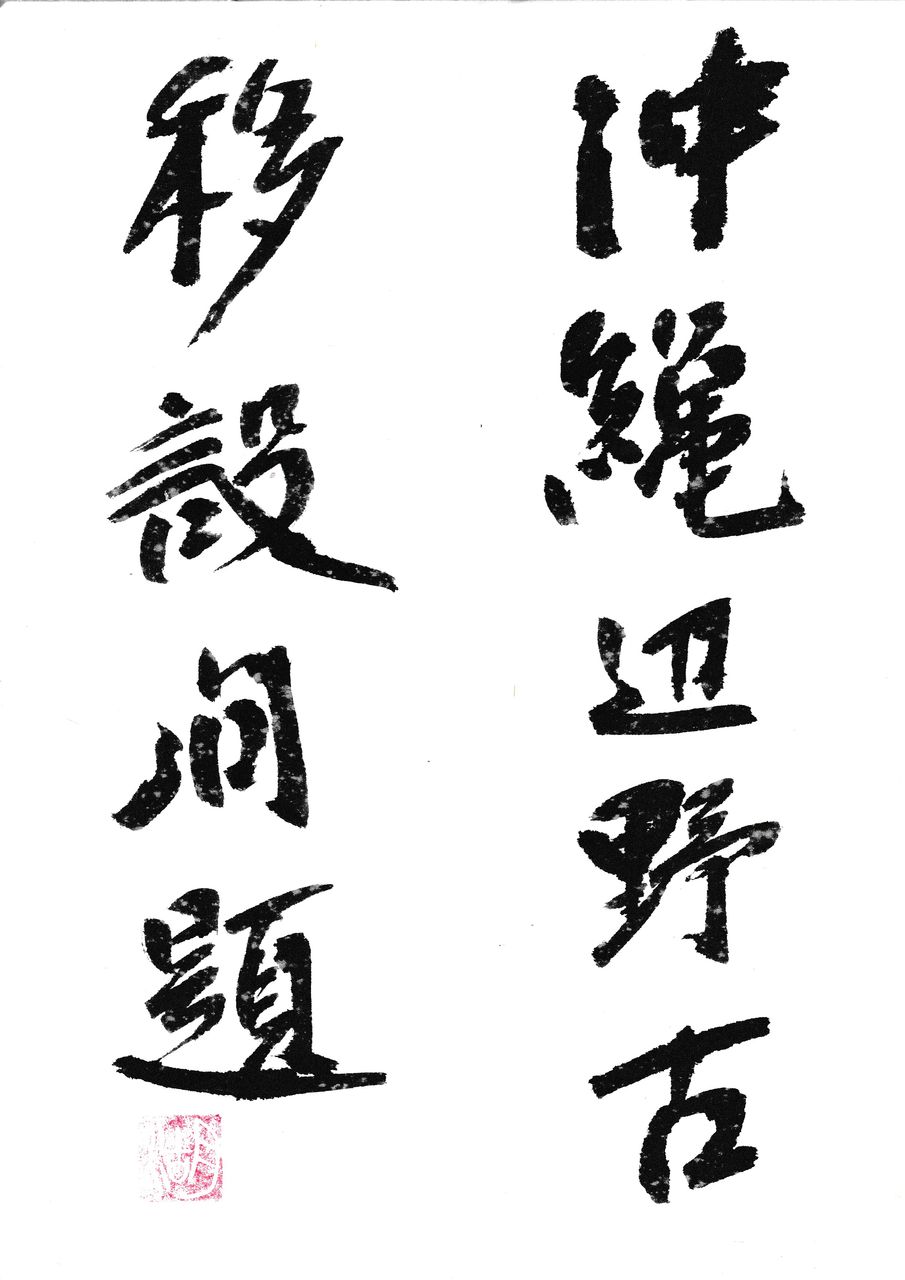 沖縄辺野古
移設問題